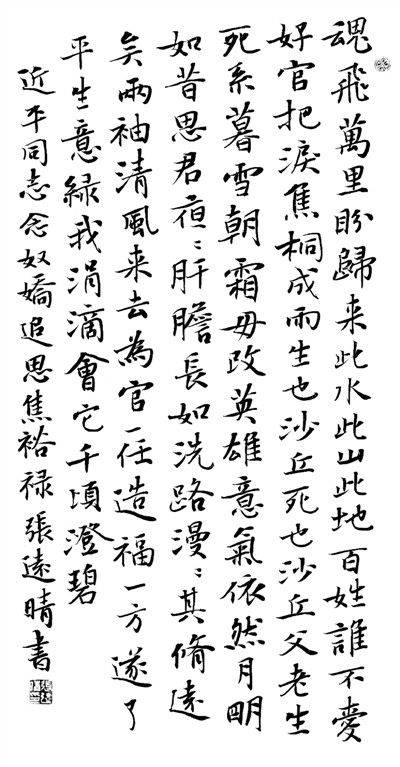 魂飛萬里盼歸来此水此山此地百姓誰不愛
好官把淚焦桐成雨生也沙丘死也沙丘父老生
死系暮雪朝霜毋改英雄意氣依然月明
如昔思君夜〻肝膽長如洗路漫〻其脩遠
矣兩袖清風来去為官一任造福一方遂了
平生意綠我涓滴會它千頃澄碧
近平同志念奴嬌追思焦裕禄張遠晴書